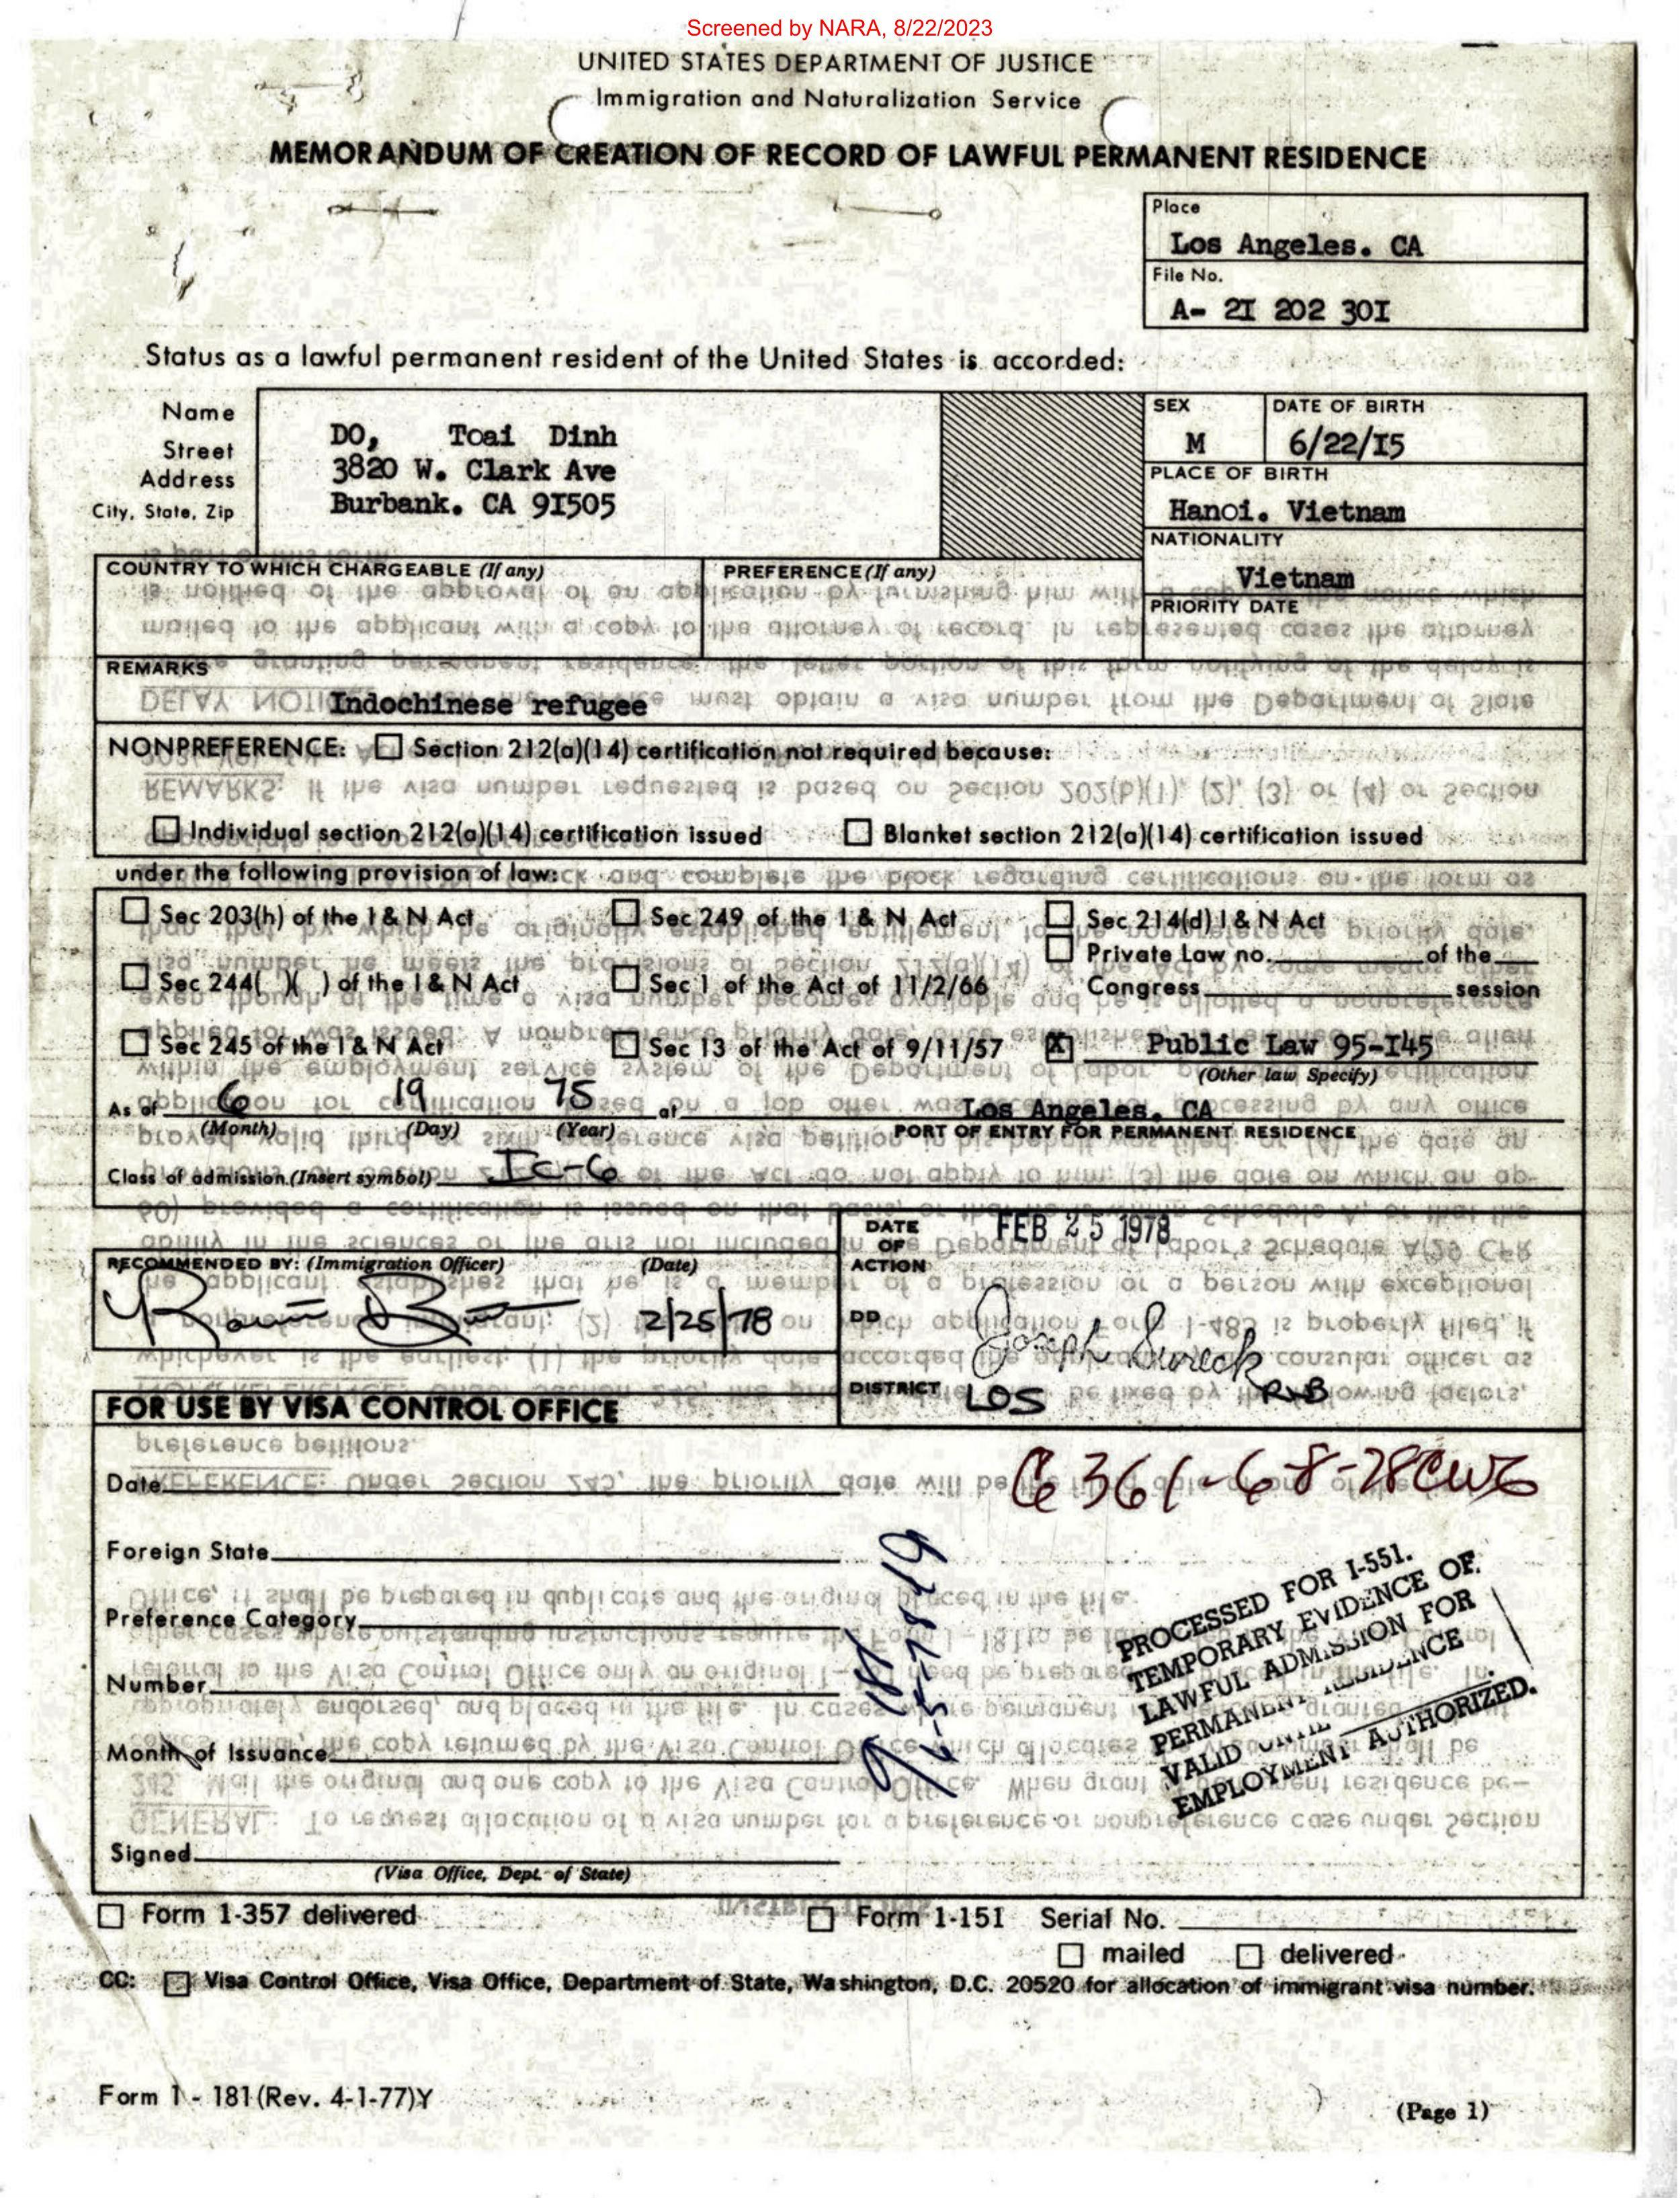 Screened by NARA, 8/22/2023
UNITED STATES DEPARTMENT OF JUSTICE
Immigration and Naturalization Service
MEMORANDUM OF CREATION OF RECORD OF LAWFUL PERMANENT RESIDENCE
Place
Los Angeles. CA
File No.
A- 2I 202 30I
Status as a lawful permanent resident of the United States is accorded:
Name
Street
Address
City, State, Zip
DO, Toai Dinh
3820 W. Clark Ave
Burbank. CA 9I505
SEX
M
DATE OF BIRTH
6/22/I5
PLACE OF BIRTH
Hanoi. Vietnam
NATIONALITY
Vietnam
PRIORITY DATE
COUNTRY TO WHICH CHARGEABLE (If any)
PREFERENCE (If any)
REMARKS
Indochinese refugee
NONPREFERENCE: Section 212(a)(14) certification not required because:
Individual section 212(a)(14) certification issued Blanket section 212(a)(14) certification issued
under the following provision of law:
Sec 203(h) of the I & N Act Sec 249 of the I & N Act Sec 214(d) I & N Act
Private Law no. of the
Sec 244( )( ) of the I & N Act Sec 1 of the Act of 11/2/66 Congress session
Sec 245 of the I & N Act Sec 13 of the Act of 9/11/57 X Public Law 95-I45
(Other law Specify)
As of 6 19 75 at Los Angeles. CA
(Month) (Day) (Year) PORT OF ENTRY FOR PERMANENT RESIDENCE
Class of admission (Insert symbol) IC-6
RECOMMENDED BY: (Immigration Officer) (Date)
2/25/78
DATE OF ACTION
FEB 25 1978
DD
Joseph Sureck
DISTRICT
LOS RxB
FOR USE BY VISA CONTROL OFFICE
Date
Foreign State
Preference Category
Number
Month of Issuance
Signed
(Visa Office, Dept. of State)
PROCESSED FOR I-551.
TEMPORARY EVIDENCE OF
LAWFUL ADMISSION FOR
PERMANENT RESIDENCE
VALID UNTIL
EMPLOYMENT AUTHORIZED.
Form 1-357 delivered Form 1-151 Serial No.
mailed delivered
CC: Visa Control Office, Visa Office, Department of State, Washington, D.C. 20520 for allocation of immigrant visa number.
Form 1 - 181 (Rev. 4-1-77)Y
(Page 1)